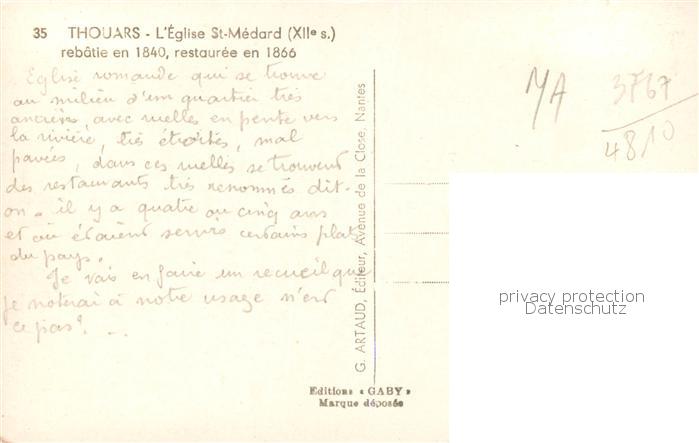 35 THOUARS - L'Église St-Médard (XIIe s.)
rebâtie en 1840, restaurée en 1866
Eglise romande qui se trouve
au milieu d'un quartier très
ancien, avec ruelles en pente vers
la rivière, très étroites, mal
pavées, dans ces ruelles se trouvent
des restaurants très renommés dit-
on. il y a quatre ou cinq ans
et où étaient servis certains plats
du pays.
Je vais en faire un recueil que
je noterai à notre usage n'est
ce pas? ...
G. ARTAUD, Éditeur, Avenue de la Close, Nantes
Editions « GABY »
Marque déposée
MA
3767
4810
privacy protection
Datenschutz